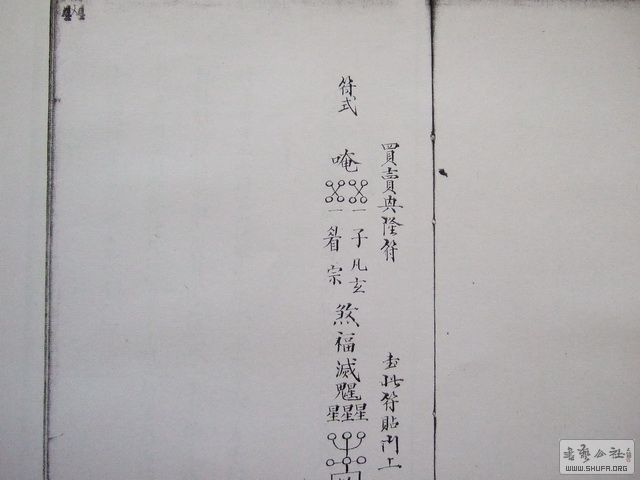 買賣興隆符 書此符貼門上
符式
唵
一 一
子 凡 玄
宗
煞
福
滅
星星星
44
書藝公社
WWW.SHUFA.ORG